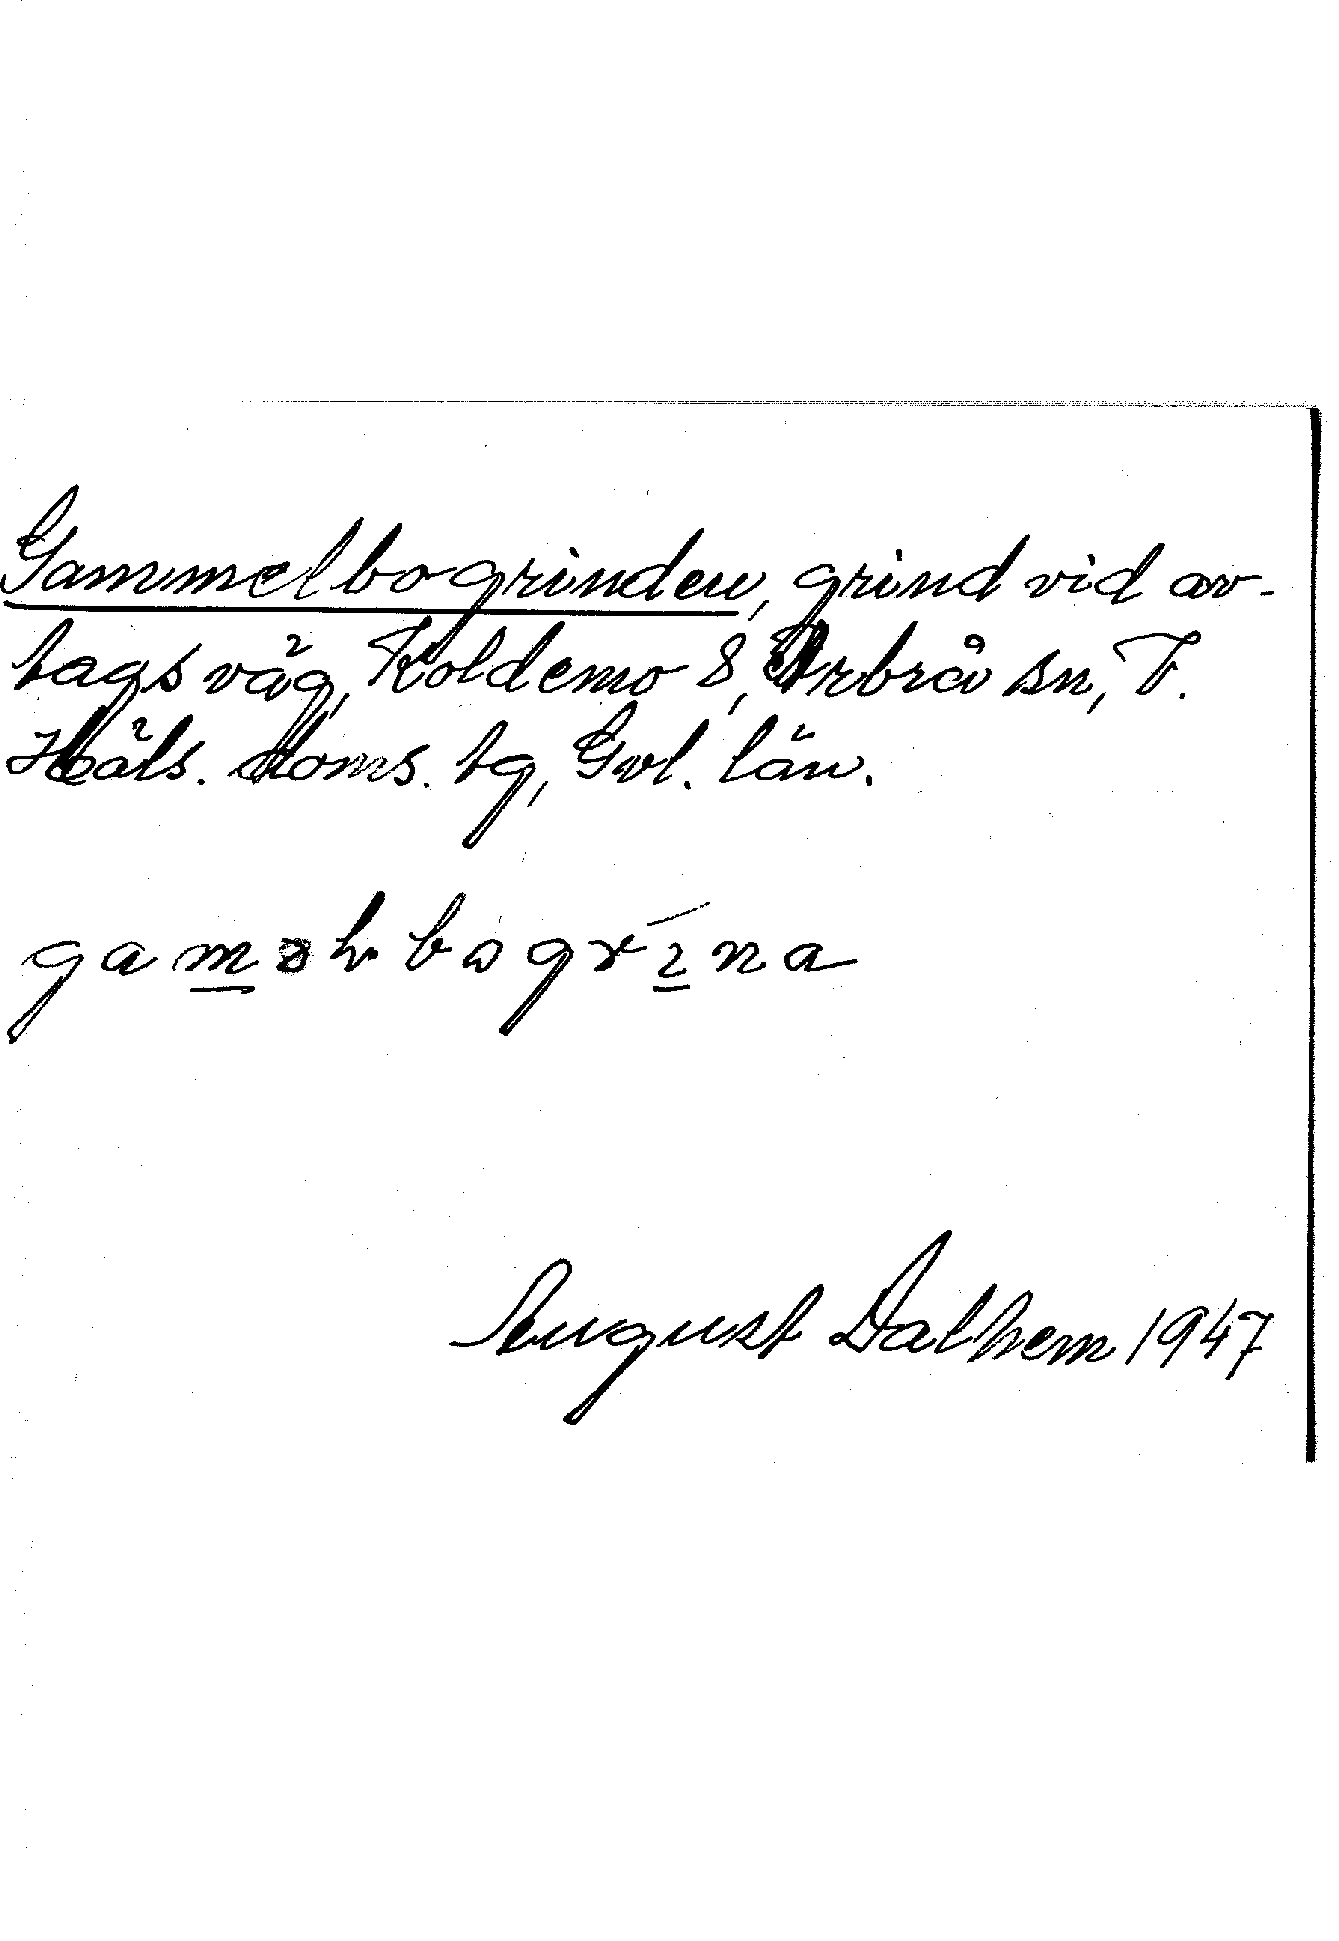 Gammelbogrinden, grind vid av-
tagsväg, Koldemo 8, Arbrå sn, V.
Häls. doms. tg, Gvl. län.
gaməɫbogrɪna
August Dalhem 1947